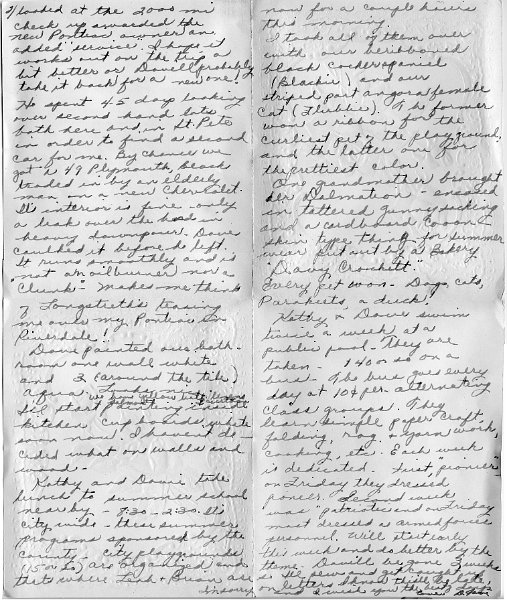 looked at the 2000 mi
check up awarded the
new Pontiac owner an
added service. I hope it
works out on the trip a
bit better or Dave'll probably
take it back for a new one!
He spent 4-5 days looking
over second hand lots,
both here and in St. Pete
in order to find a second
car for me. By chance we
got a 49 Plymouth, black
traded in by an elderly
man on a new Chevrolet.
It's interior is fine - only
a leak over the hood in
heavy downpour. Dave
caulked it before he left.
It runs smoothly and is
not an oil burner nor a
clunk - makes me think
of Longstreth's teasing
me over my Pontiac in
Riverdale!!
Dave painted our bath-
room one wall white
and 3 (around the tile)
aqua.
I'll start painting
kitchen cupboards, white
soon now. I haven't de-
cided what on walls and
wood -
Kathy and Davie take
lunch to summer school
nearby - 9:30 - 2:30. It's
city wide - these summer
programs sponsored by the
county. City playgrounds
(15 or so) are organized and
that's where Leah & Brian are
I'm sorry
now for a couple hours
this morning.
I took all of them over
with our beribboned
black cocker spaniel
(Blackie) and our
striped part angora female
cat (Flubbie). The former
won a ribbon for the
curliest pet of the playground
and the latter one for
the prettiest color.
One grandmother brought
her Dalmation - encased
in tattered gunny sacking
and a cardboard coon-
skin type thing for summer
wear put out by a bakery
"Davy Crockett"
Every pet won - Dogs, cats,
Parakeets, a duck!
Kathy & Dave swim
twice a week at a
public pool. They are
taken - 140 or so on a
bus. The bus goes every
day at 10¢ per - alternating
class groups. They
learn simple paper craft,
folding, rag & yarn work,
cooking, etc. Each week
is dedicated. First, pioneer;
on Friday they dressed
pioneer. Second week
was "patriotic" and on Friday
most dressed as armed forces
personnel. Will start early
this week and do better by the
theme. Dave'll be gone 3 weeks
so I'll sew and get caught up
on letters I know
and I wish you the best